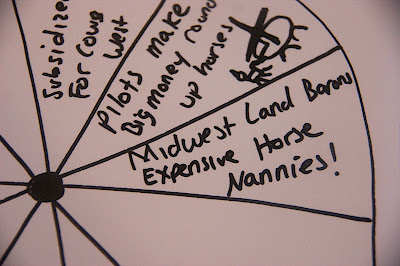 Subsidizes
For Cows
West
Pilots make
Big money round
up horses
Midwest Land Barons
Expensive Horse
Nannies!